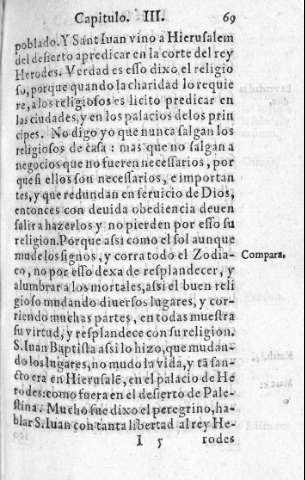 Capitulo. III. 69
poblado. Y Sant Iuan vino a Hierusalem
del desierto apredicar en la corte del rey
Herodes. Verdad es esso dixo el religio
so, porque quando la charidad lo requie
re, a los religiosos es licito predicar en
las ciudades, y en los palacios delos prin
cipes. No digo yo que nunca salgan los
religiosos de casa: mas que no salgan a
negocios que no fueren necessarios, por
que si ellos son necessarios, e importan
tes, y que redundan en seruicio de Dios,
entonces con deuida obediencia deuen
salir a hazerlos y no pierden por esso su
religion. Porque assi como el sol aunque
mude los signos, y corra todo el Zodia-
co, no por esso dexa de resplandecer, y
alumbrar a los mortales, assi el buen reli
gioso mudando diuersos lugares, y cor-
riendo muchas partes, en todas muestra
su virtud, y resplandece con su religion.
S. Iuan Baptista assi lo hizo, que mudan-
do los lugares, no mudo la vida, y tã san-
cto era en Hierusalẽ, en el palacio de He
rodes: como fuera en el desierto de Pale-
stina. Mucho fue dixo el peregrino, ha-
blar S. Iuan con tanta libertad al rey He-
I 5 rodes
Compara.